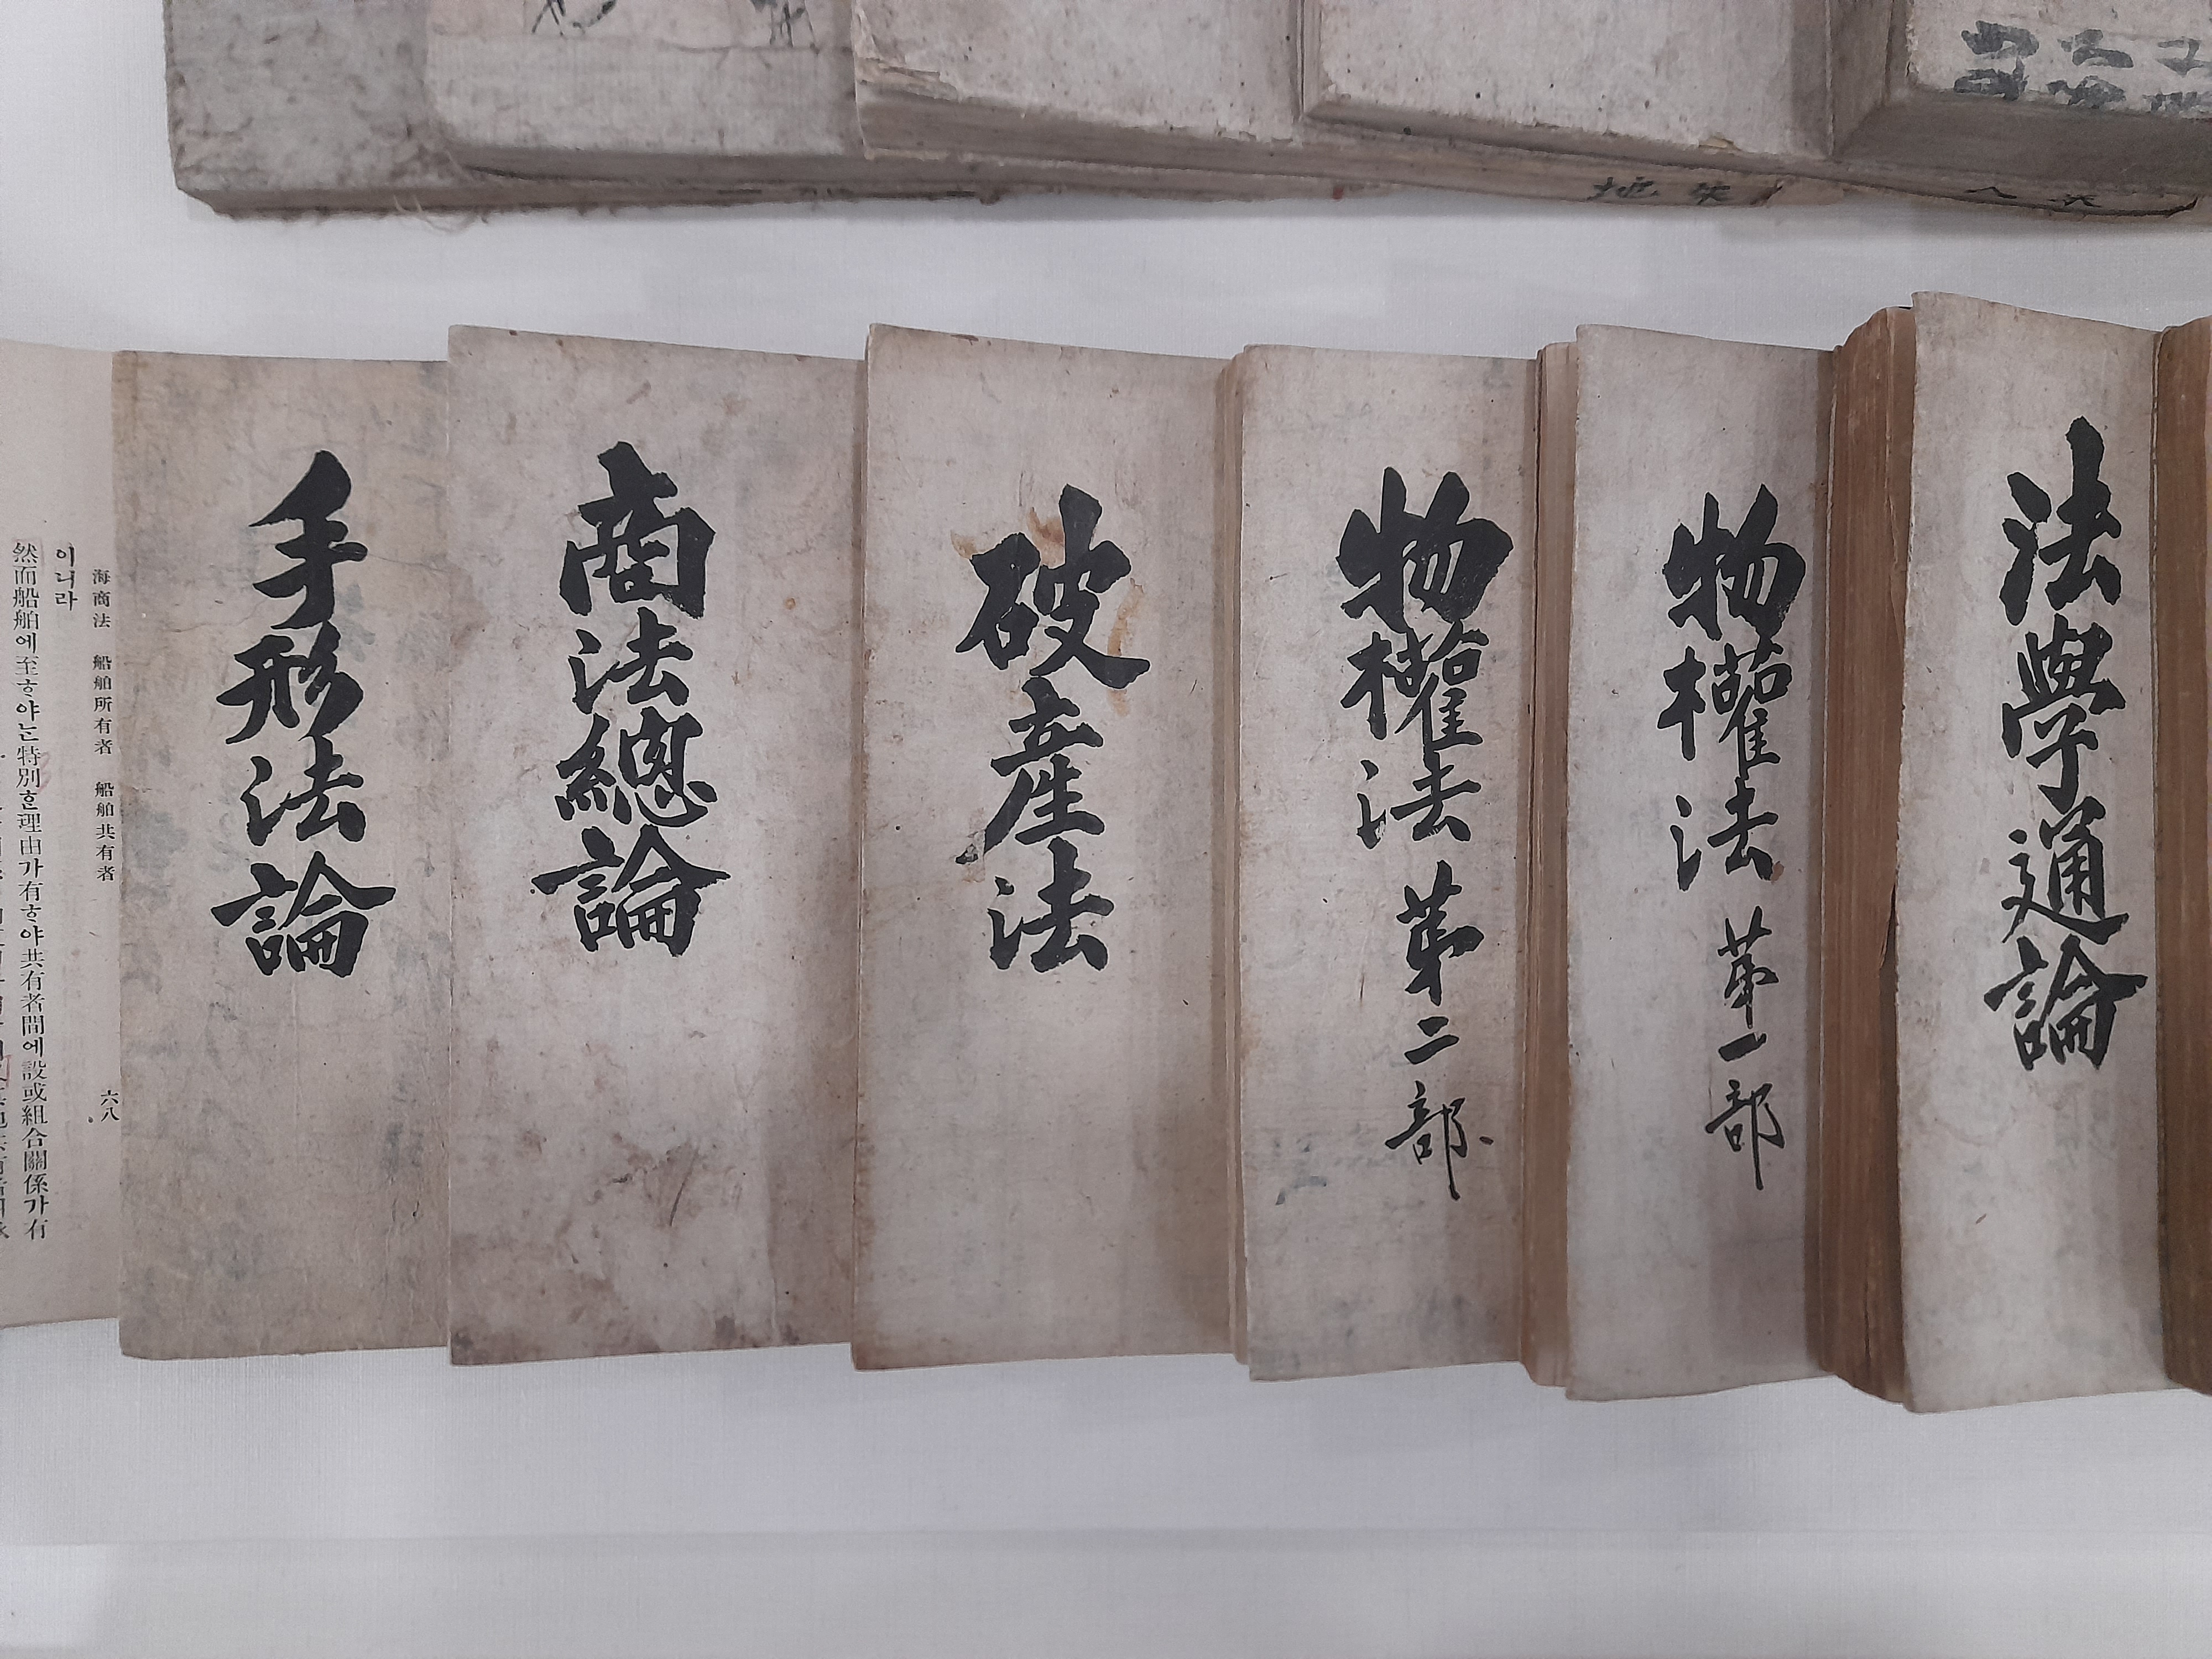 法學通論
物權法 第一部
物權法 第二部
破産法
商法總論
手形法論
海商法 船舶所有者 船舶共有者 六八
이니라
然而船舶에至ᄒᆞ야ᄂᆞᆫ特別ᄒᆞᆫ理由가有ᄒᆞ야共有者間에設或組合關係가有